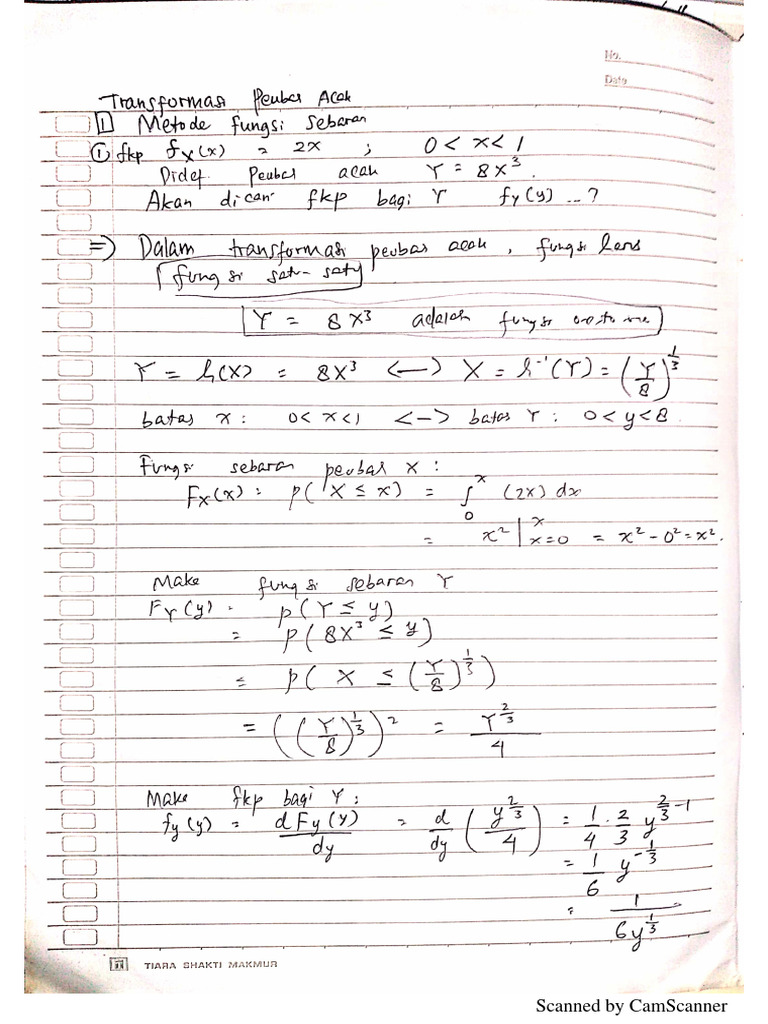 No.
Date
Transformasi Peubas Acak
1 Metode fungsi sebaran
① fkp fx(x) = 2x ; 0 < x < 1
Didef peubas acak Y = 8X³.
Akan dicari fkp bagi Y fy(y) ...?
=> Dalam transformasi peubas acak, fungsi harus
fungsi satu-satu
Y = 8X³ adalah fungsi
Y = h(X) = 8X³ <-> X = h⁻¹(Y) = (Y/8)^(1/3)
batas x : 0 < x < 1 <-> batas Y : 0 < y < 8
Fungsi sebaran peubas X :
Fx(x) = p(X ≤ x) = ∫₀ˣ (2x) dx
= x² |ₓ₌₀ˣ = x² - 0² = x².
Maka fungsi sebaran Y
FY(y) = p(Y ≤ y)
= p(8X³ ≤ y)
= p(X ≤ (Y/8)^(1/3))
= ((Y/8)^(1/3))² = Y^(2/3)/4
Maka fkp bagi Y :
fy(y) = dFy(y)/dy = d/dy (y^(2/3)/4) = 1/4 · 2/3 y^(2/3 - 1)
= 1/6 y^(-1/3)
= 1/(6y^(1/3))
TIARA SHAKTI MAKMUR
Scanned by CamScanner